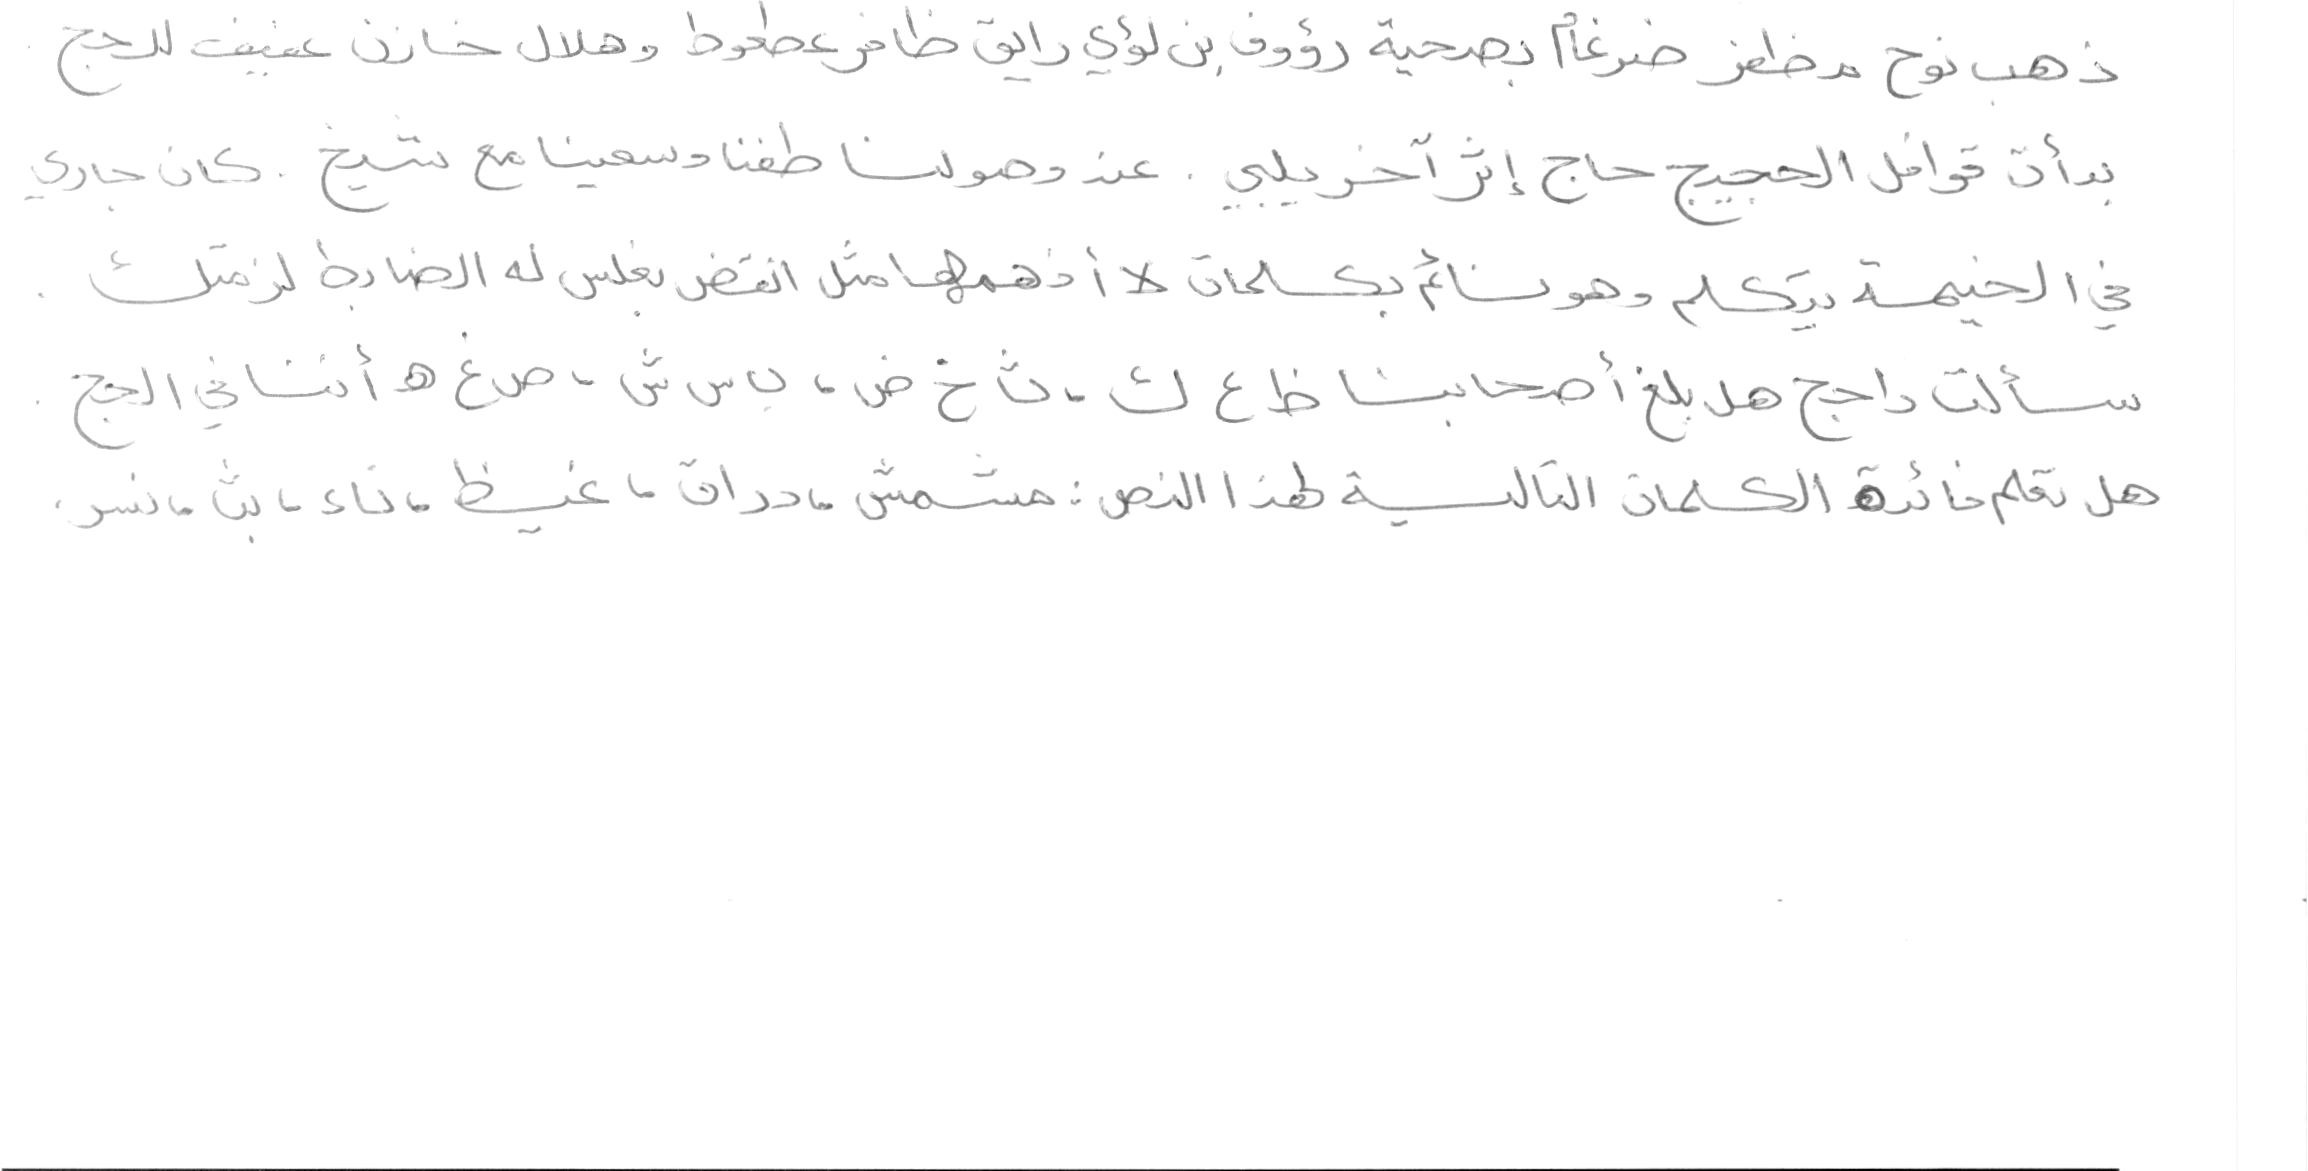 ذهب نوح مظفر ضرغام بصحبة رؤوف بن لؤي رايق ظافر عطعوط وهلال خازن عفيف للحج .
بدأت قوافل الحجيج حاج إثر آخر يلبي . عند وصولنا طفنا وسعينا مع شيخ . كان جاري
في الخيمة يتكلم وهو نائم بكلمات لا أفهمها مثل انقض بغلس له الضابط لزمتك .
سألت راجح هل بلغ أصحابنا ظ ع ك ، ث خ ض ، ب س ش ، ص غ ه أننا في الحج .
هل تعلم فائدة الكلمات التالية لهذا النص : مشمش ، دراق ، غيظ ، ناء ، بث ، نسر .